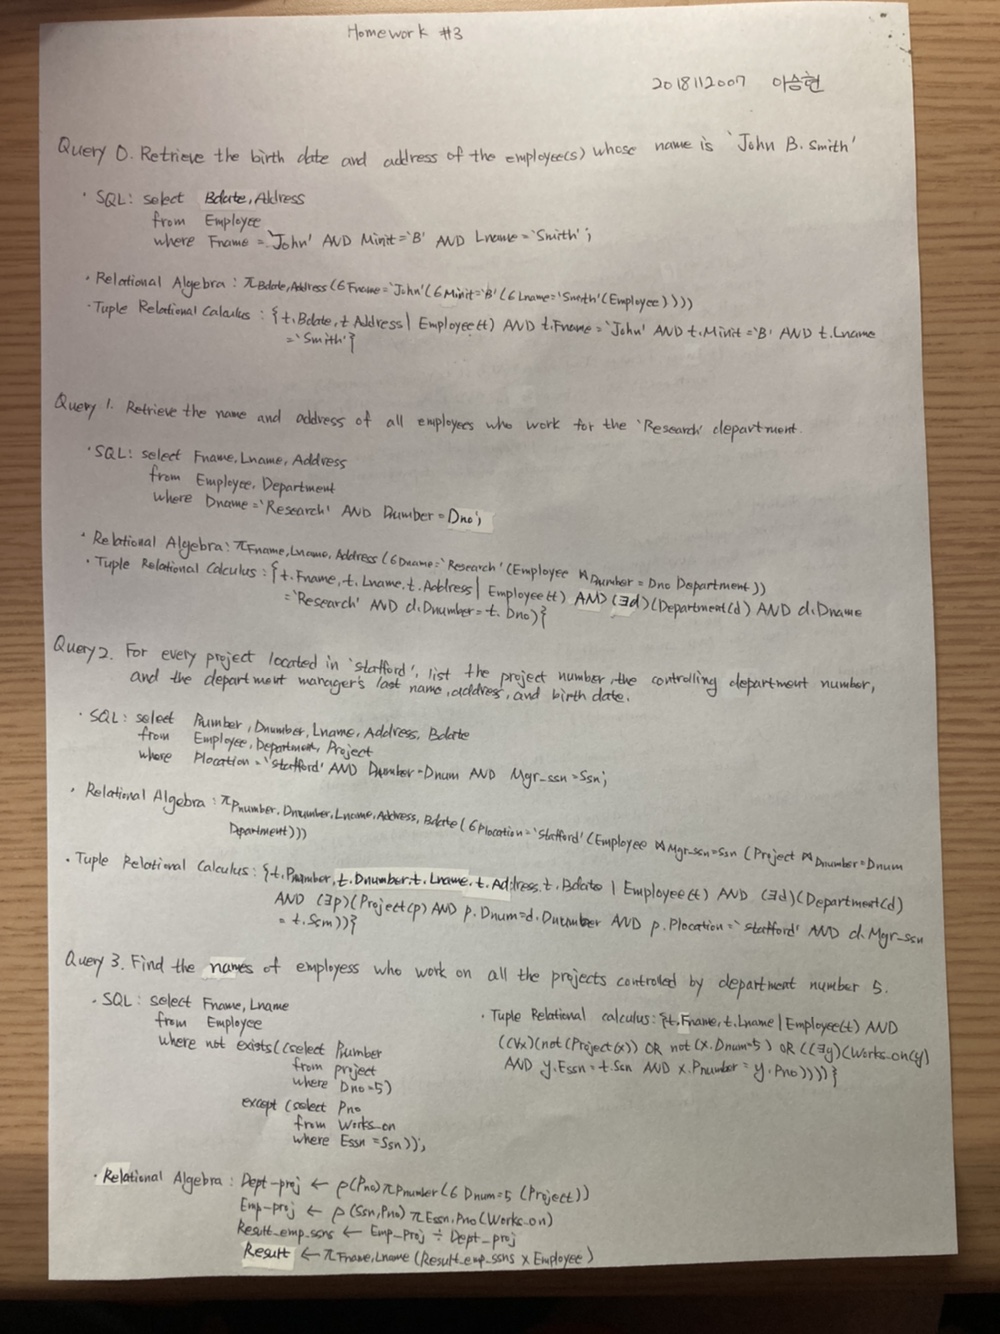 Homework #3
2018112007 이승현
Query 0. Retrieve the birth date and address of the employee(s) whose name is 'John B. Smith'
· SQL: select Bdate, Address
from Employee
where Fname = 'John' AND Minit = 'B' AND Lname = 'Smith';
· Relational Algebra : π Bdate, Address (σ Fname = 'John' (σ Minit = 'B' (σ Lname = 'Smith' (Employee))))
· Tuple Relational Calculus : {t.Bdate, t Address | Employee(t) AND t.Fname = 'John' AND t.Minit = 'B' AND t.Lname
= 'Smith'}
Query 1. Retrieve the name and address of all employees who work for the 'Research' department.
· SQL: select Fname, Lname, Address
from Employee, Department
where Dname = 'Research' AND Dnumber = Dno;
· Relational Algebra : π Fname, Lname, Address (σ Dname = 'Research' (Employee ⋈ Dnumber = Dno Department))
· Tuple Relational Calculus : {t.Fname, t.Lname, t.Address | Employee(t) AND (∃d)(Department(d) AND d.Dname
= 'Research' AND d.Dnumber = t.Dno)}
Query 2. For every project located in 'statford', list the project number, the controlling department number,
and the department manager's last name, address, and birth date.
· SQL: select Pnumber, Dnumber, Lname, Address, Bdate
from Employee, Department, Project
where Plocation = 'statford' AND Dnumber = Dnum AND Mgr_ssn = Ssn;
· Relational Algebra : π Pnumber, Dnumber, Lname, Address, Bdate (σ Plocation = 'Statford' (Employee ⋈ Mgr_ssn = Ssn (Project ⋈ Dnumber = Dnum
Department)))
· Tuple Relational Calculus : {t.Pnumber, t.Dnumber, t.Lname, t.Address, t.Bdate | Employee(t) AND (∃d)(Department(d)
AND (∃p)(Project(p) AND p.Dnum = d.Dnumber AND p.Plocation = 'statford' AND d.Mgr_ssn
= t.Ssn))}
Query 3. Find the names of employess who work on all the projects controlled by department number 5.
· SQL: select Fname, Lname
from Employee
where not exists((select Pnumber
from project
where Dno=5)
except (select Pno
from Works_on
where Essn = Ssn));
· Tuple Relational calculus: {t.Fname, t.Lname | Employee(t) AND
((∀x)(not(Project(x)) OR not(x.Dnum=5) OR ((∃y)(Works_on(y)
AND y.Essn = t.Ssn AND x.Pnumber = y.Pno))))}
· Relational Algebra : Dept-proj ← ρ(Pno) π Pnumber (σ Dnum=5 (Project))
Emp-proj ← ρ (Ssn, Pno) π Essn, Pno (Works_on)
Result_emp_ssns ← Emp_Proj ÷ Dept_proj
Result ← π Fname, Lname (Result_emp_ssns x Employee)